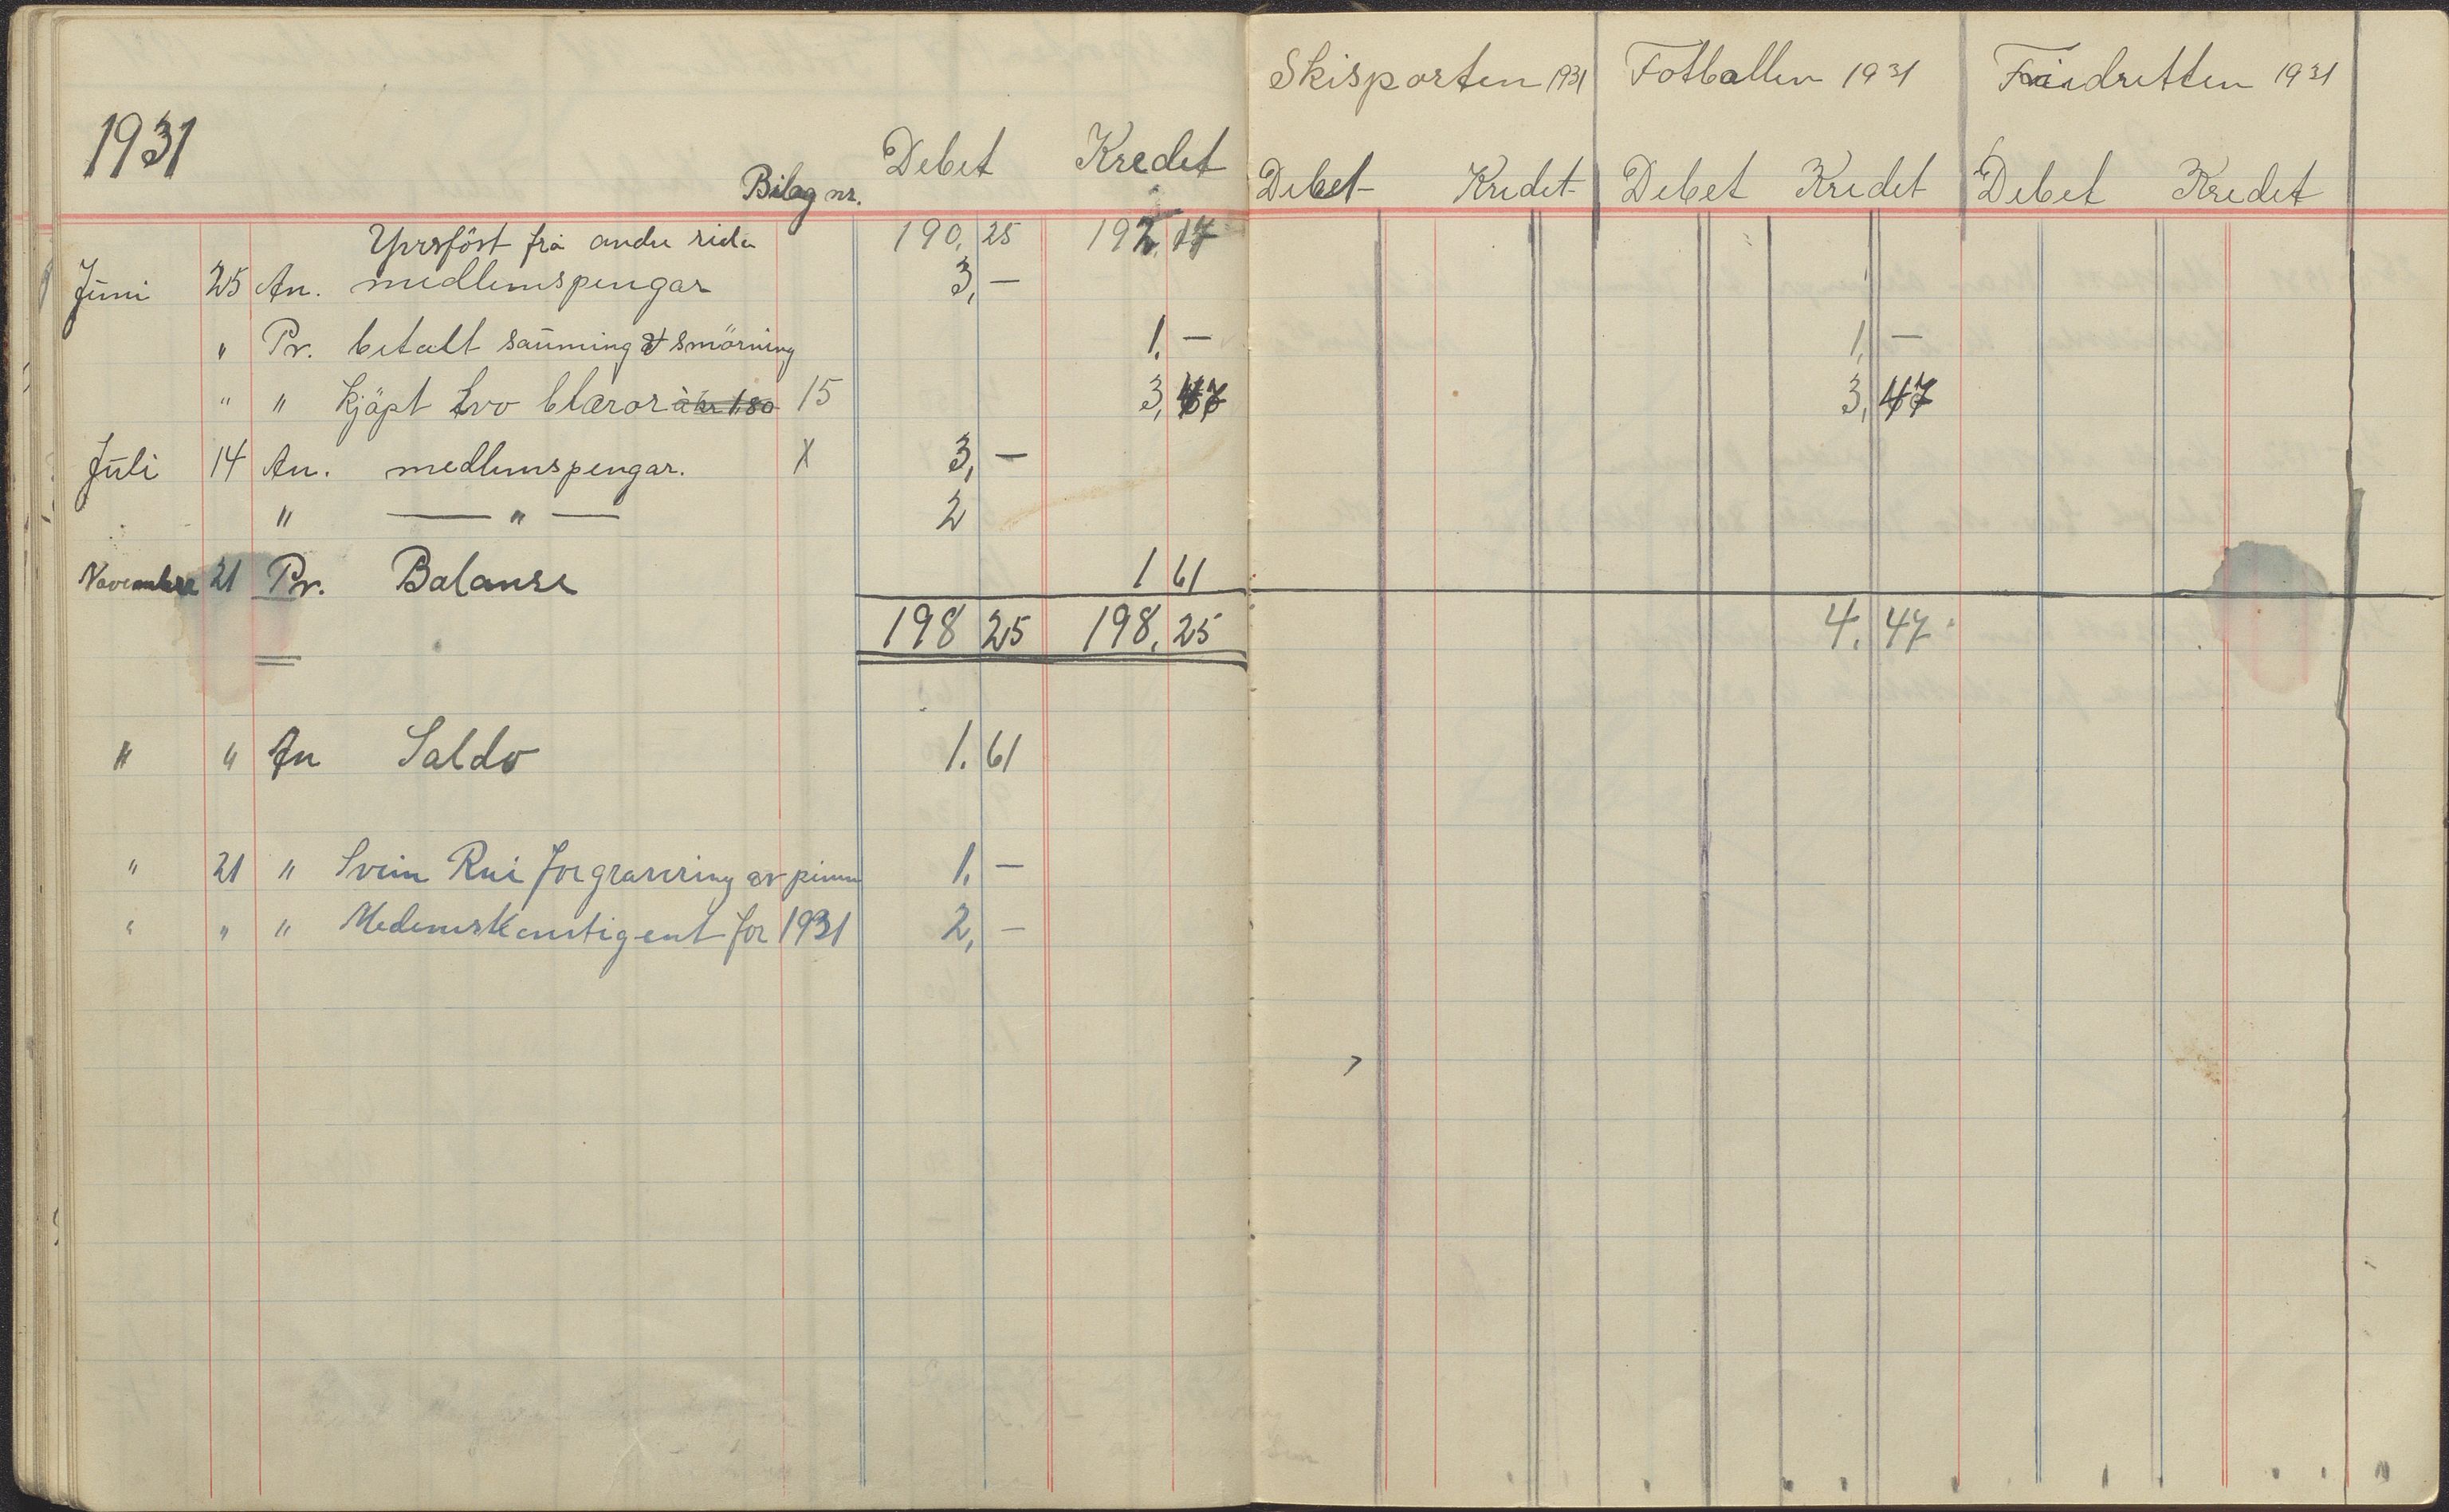 Skisporten 1931 Fotballen 1931 Friidretten 1931
1931
Bilag nr. Debet Kredet Debet Kredet Debet Kredet Debet Kredet
Yverfört frå andre sida 190, 25 192, 17
Juni 25 An. medlemspengar 3, —
" Pr. betalt sauming & smörning 1, — 1, —
" " kjöpt tvo blæror à kr 1.80 15 3, 47 3, 47
Juli 14 An. medlemspengar. X 3, —
" — " — 2
November 21 Pr. Balanse 1 61
198 25 198, 25 4, 47
" " An Saldo 1. 61
" 21 " Svein Rui for gravering av 1, —
" " " Medemskontigent for 1931 2, —